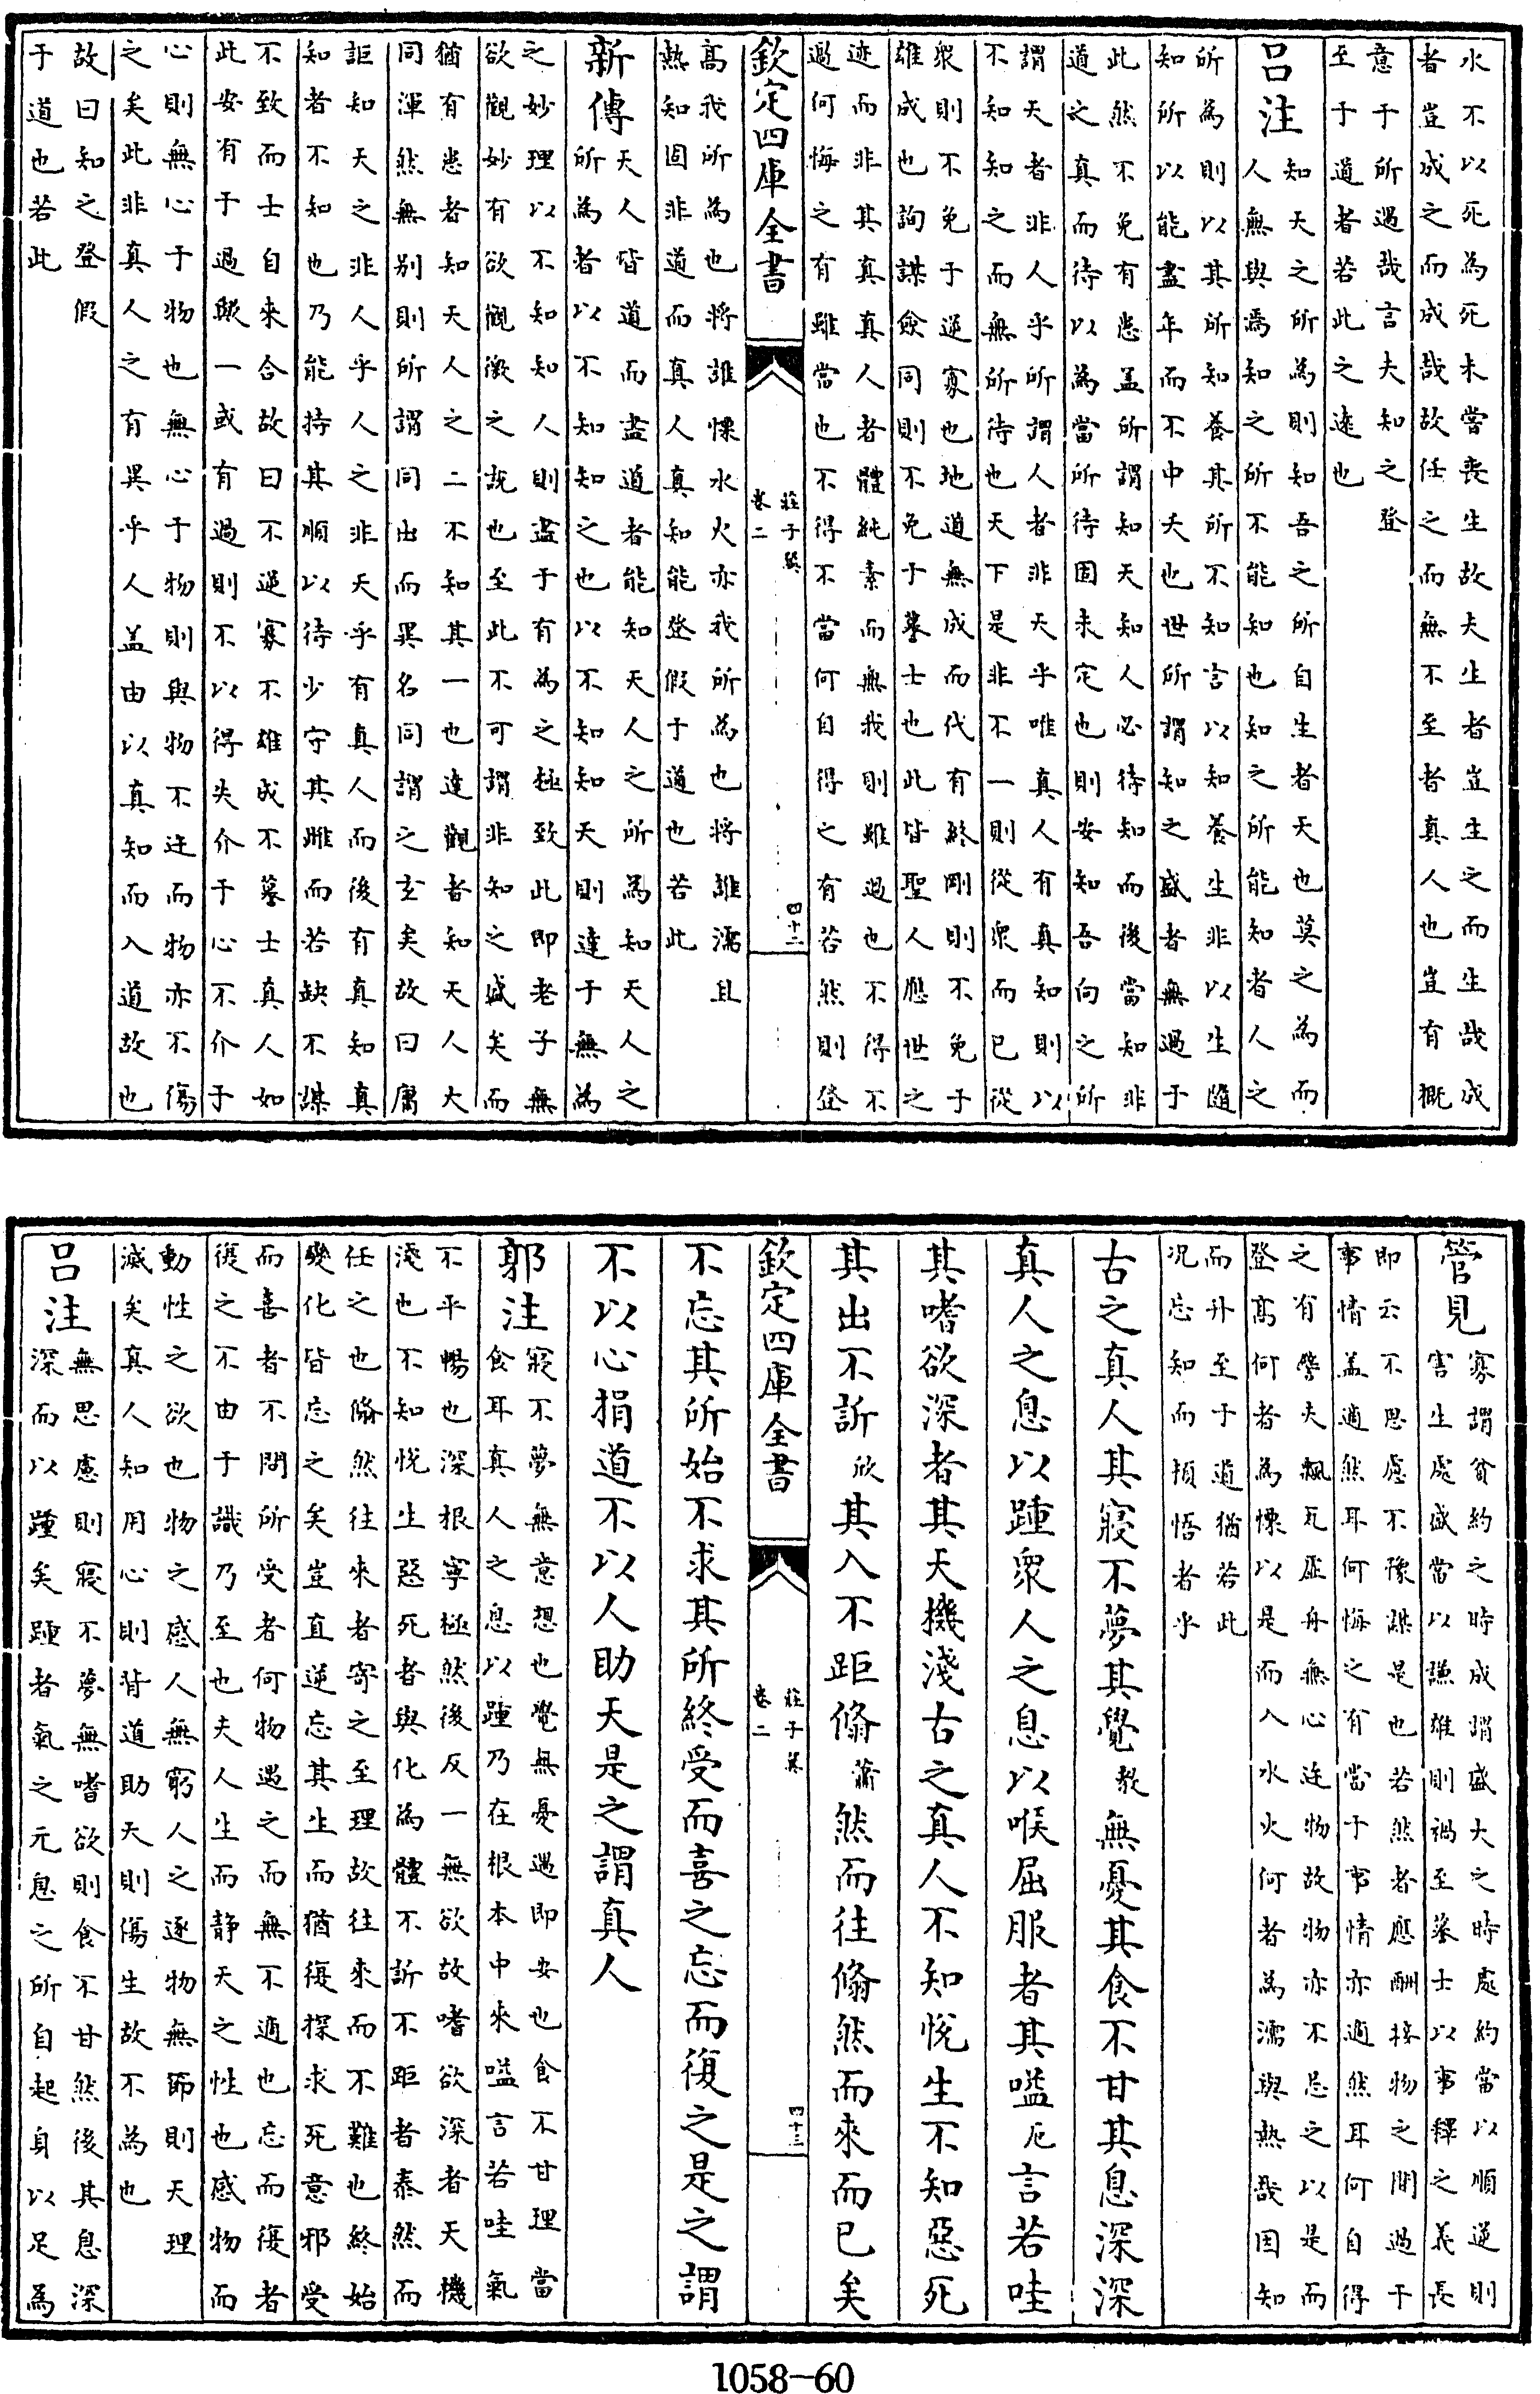 水不以死為死未嘗喪生故夫生者豈生之而生哉成
者豈成之而成哉故任之而無不至者真人也豈有概
意于所遇哉言夫知之登
至于道者若此之遠也
呂注 知天之所為則知吾之所自生者天也莫之為而
人無與焉知之所不能知也知之所能知者人之
所為則以其所知養其所不知言以知養生非以生隨
知所以能盡年而不中夭也世所謂知之盛者無過于
此然不免有患盖所謂知天知人必待知而後當知非
道之真而待以為當所待固未定也則安知吾向之所
謂天者非人乎所謂人者非天乎唯真人有真知則以
不知知之而無所待也天下是非不一則從衆而已從
衆則不免于逆寡也地道無成而代有終剛則不免于
雄成也詢謀僉同則不免于謩士也此皆聖人應世之
迹而非其真真人者體純素而無我則雖過也不得不
過何悔之有雖當也不得不當何自得之有若然則登
欽定四庫全書
莊子翼
卷二
四十二
高我所為也將誰慄水火亦我所為也將誰濡且
熱知固非道而真人真知能登假于道也若此
新傳 天人皆道而盡道者能知天人之所為知天人之
所為者以不知知之也以不知知天則達于無為
之妙理以不知知人則盡于有為之極致此即老子無
欲觀妙有欲觀徼之說也至此不可謂非知之盛矣而
猶有患者知天人之二不知其一也達觀者知天人大
同渾然無别則所謂同出而異名同謂之玄矣故曰庸
詎知天之非人乎人之非天乎有真人而後有真知真
知者不知也乃能持其順以待少守其雌而若缺不謀
不致而士自來合故曰不逆寡不雄成不謩士真人如
此安有于過歟一或有過則不以得失介于心不介于
心則無心于物也無心于物則與物不迕而物亦不傷
之矣此非真人之有異乎人盖由以真知而入道故也
故曰知之登假
于道也若此
管見 寡謂貧約之時成謂盛大之時處約當以順逆則
害生處盛當以謙雄則禍至謩士以事釋之義長
即云不思慮不豫謀是也若然者應酬接物之間過于
事情盖適然耳何悔之有當于事情亦適然耳何自得
之有譬夫飄瓦虛舟無心迕物故物亦不忌之以是而
登高何者為慄以是而入水火何者為濡與熱哉因知
而升至于道猶若此
况忘知而頓悟者乎
古之真人其寢不夢其覺教無憂其食不甘其息深深
真人之息以踵衆人之息以喉屈服者其嗌厄言若哇
其嗜欲深者其天機淺古之真人不知悅生不知惡死
其出不訢欣其入不距翛蕭然而往翛然而來而已矣
欽定四庫全書
莊子翼
卷二
四十三
不忘其所始不求其所終受而喜之忘而復之是之謂
不以心捐道不以人助天是之謂真人
郭注 寢不夢無意想也覺無憂遇即安也食不甘理當
食耳真人之息以踵乃在根本中來嗌言若哇氣
不平暢也深根寧極然後反一無欲故嗜欲深者天機
淺也不知悅生惡死者與化為體不訢不距者泰然而
任之也翛然往來者寄之至理故往來而不難也終始
變化皆忘之矣豈直逆忘其生而猶復探求死意邪受
而喜者不問所受者何物遇之而無不適也忘而復者
復之不由于識乃至也夫人生而静天之性也感物而
動性之欲也物之感人無窮人之逐物無節則天理
滅矣真人知用心則背道助天則傷生故不為也
呂注 無思慮則寢不夢無嗜欲則食不甘然後其息深
深而以踵矣踵者氣之元息之所自起身以足為
1058-60